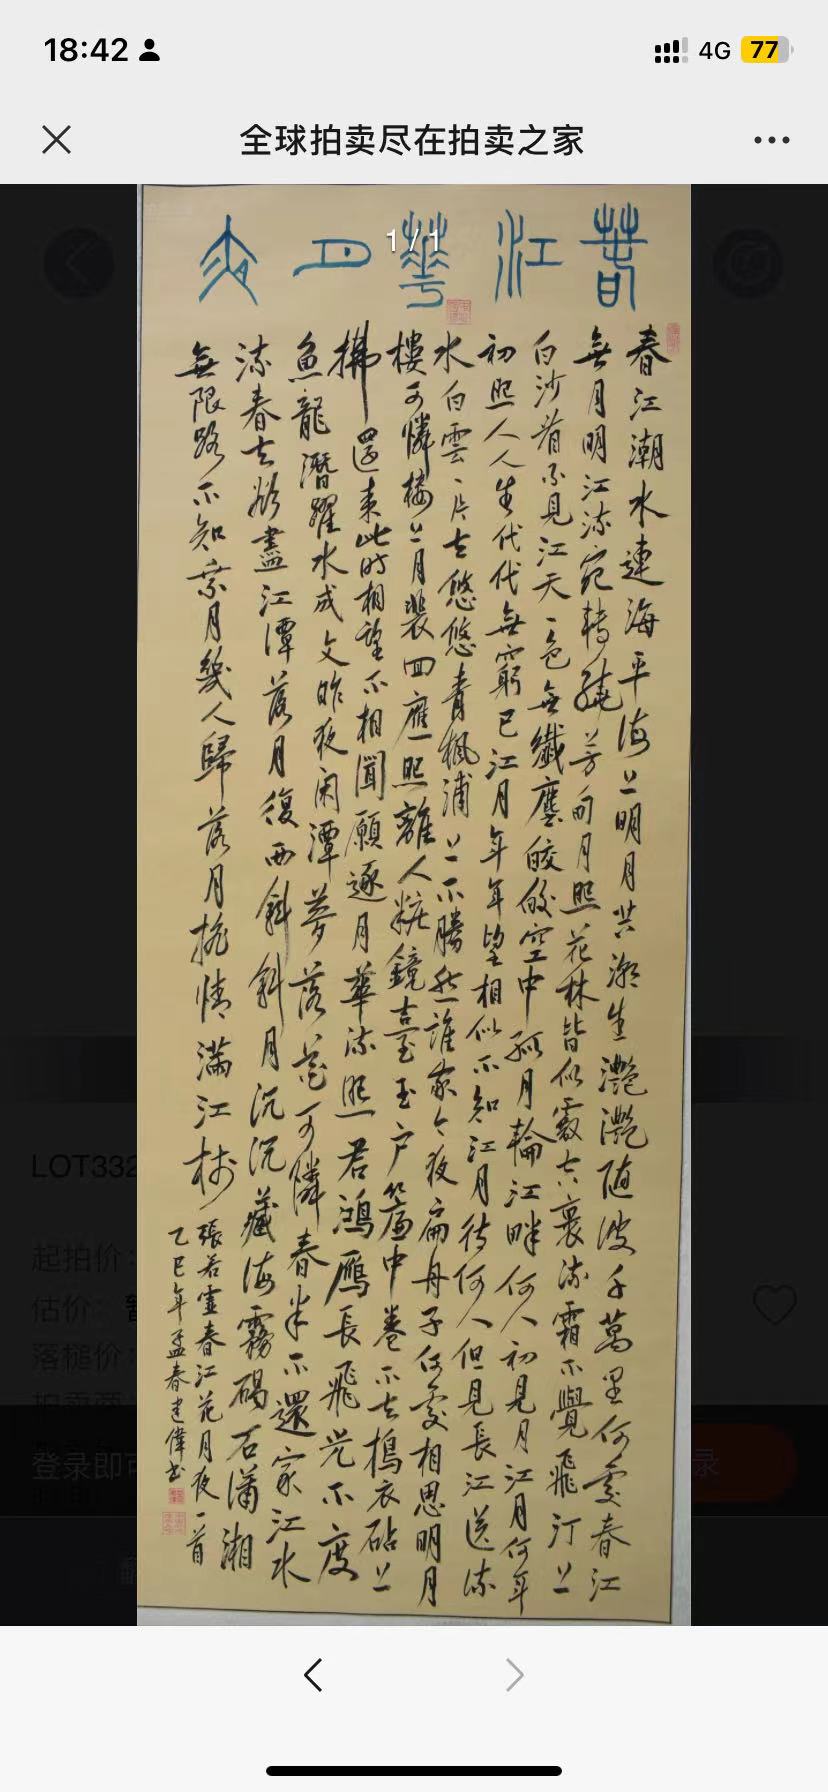 18:42
4G
77
全球拍卖尽在拍卖之家
1 / 1
萅江華月夜
春江潮水連海平海上明月共潮生灧灧随波千萬里何處春江
無月明江流宛轉繞芳甸月照花林皆似霰空裏流霜不覺飛汀上
白沙看不見江天一色無纖塵皎皎空中孤月輪江畔何人初見月江月何年
初照人人生代代無窮已江月年年望相似不知江月待何人但見長江送流
水白雲一片去悠悠青楓浦上不勝愁誰家今夜扁舟子何處相思明月
樓可憐樓上月裴回應照離人粧鏡臺玉户簾中卷不去搗衣砧上
拂還来此時相望不相聞願逐月華流照君鴻雁長飛光不度
魚龍潛躍水成文昨夜闲潭夢落花可憐春半不還家江水
流春去欲盡江潭落月復西斜斜月沉沉藏海霧碣石潇湘
無限路不知乘月幾人歸落月摇情滿江樹
張若虚春江花月夜一首
乙巳年孟春建偉书
LOT332
起拍价:
估价:
落槌价:
登录即可
录